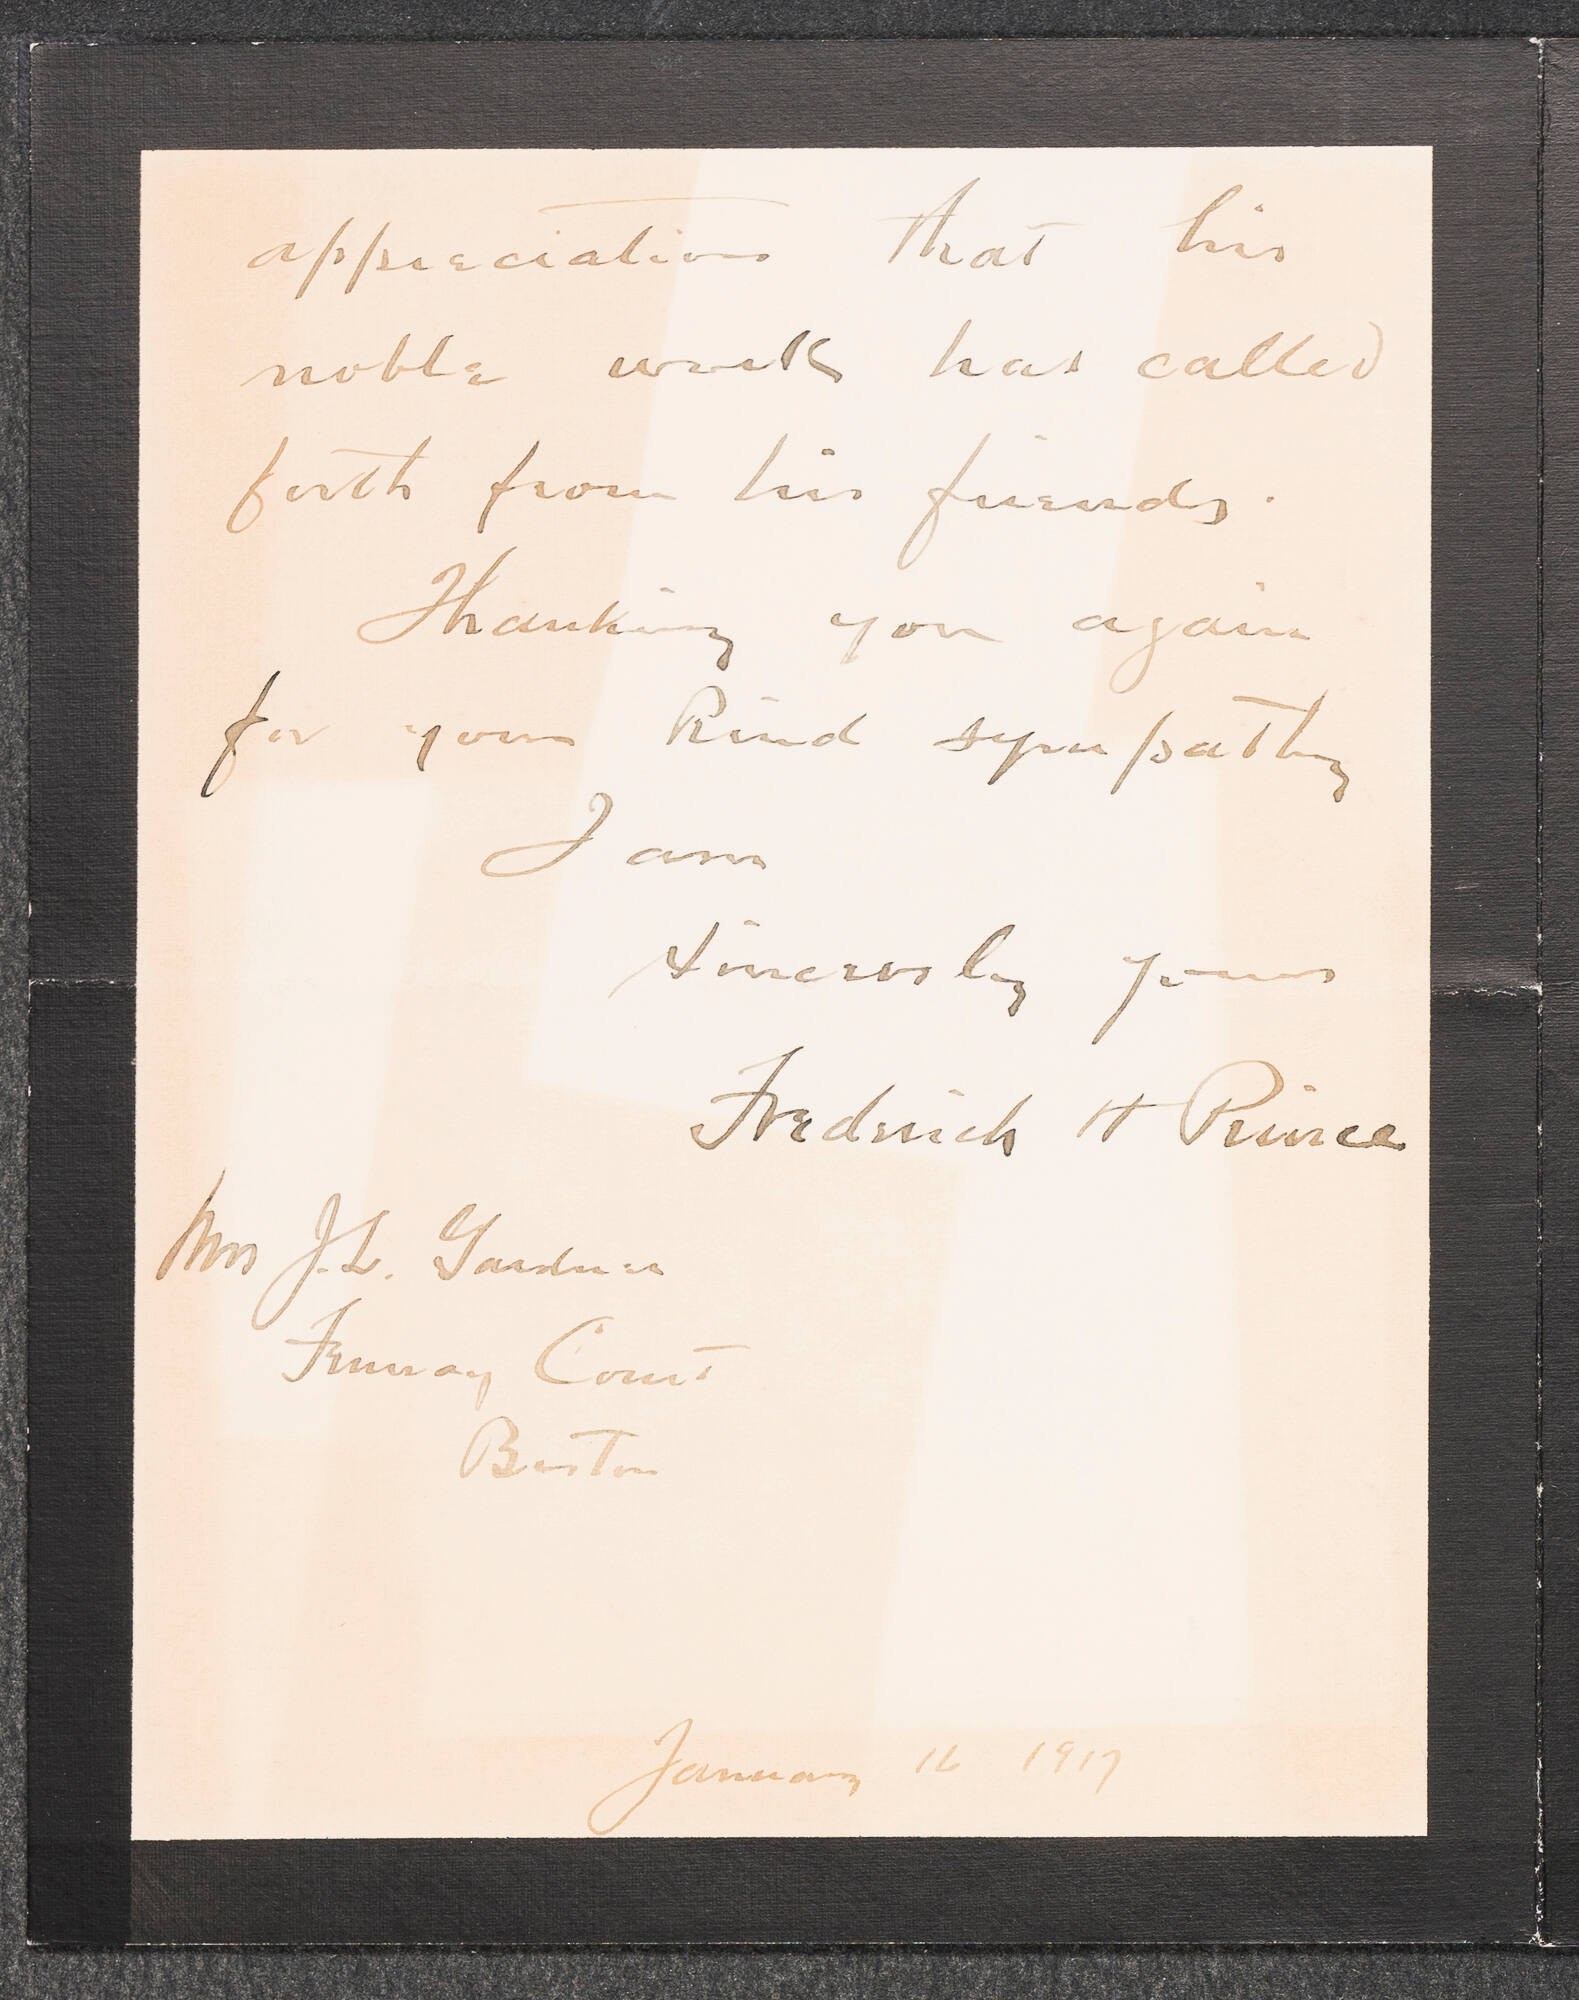 appreciation that his
noble work has called
forth from his friends.
Thanking you again
for your kind sympathy
I am
Sincerely yours
Frederick H Prince
Mrs J. L. Gardner
Fenway Court
Boston
January 16 1917